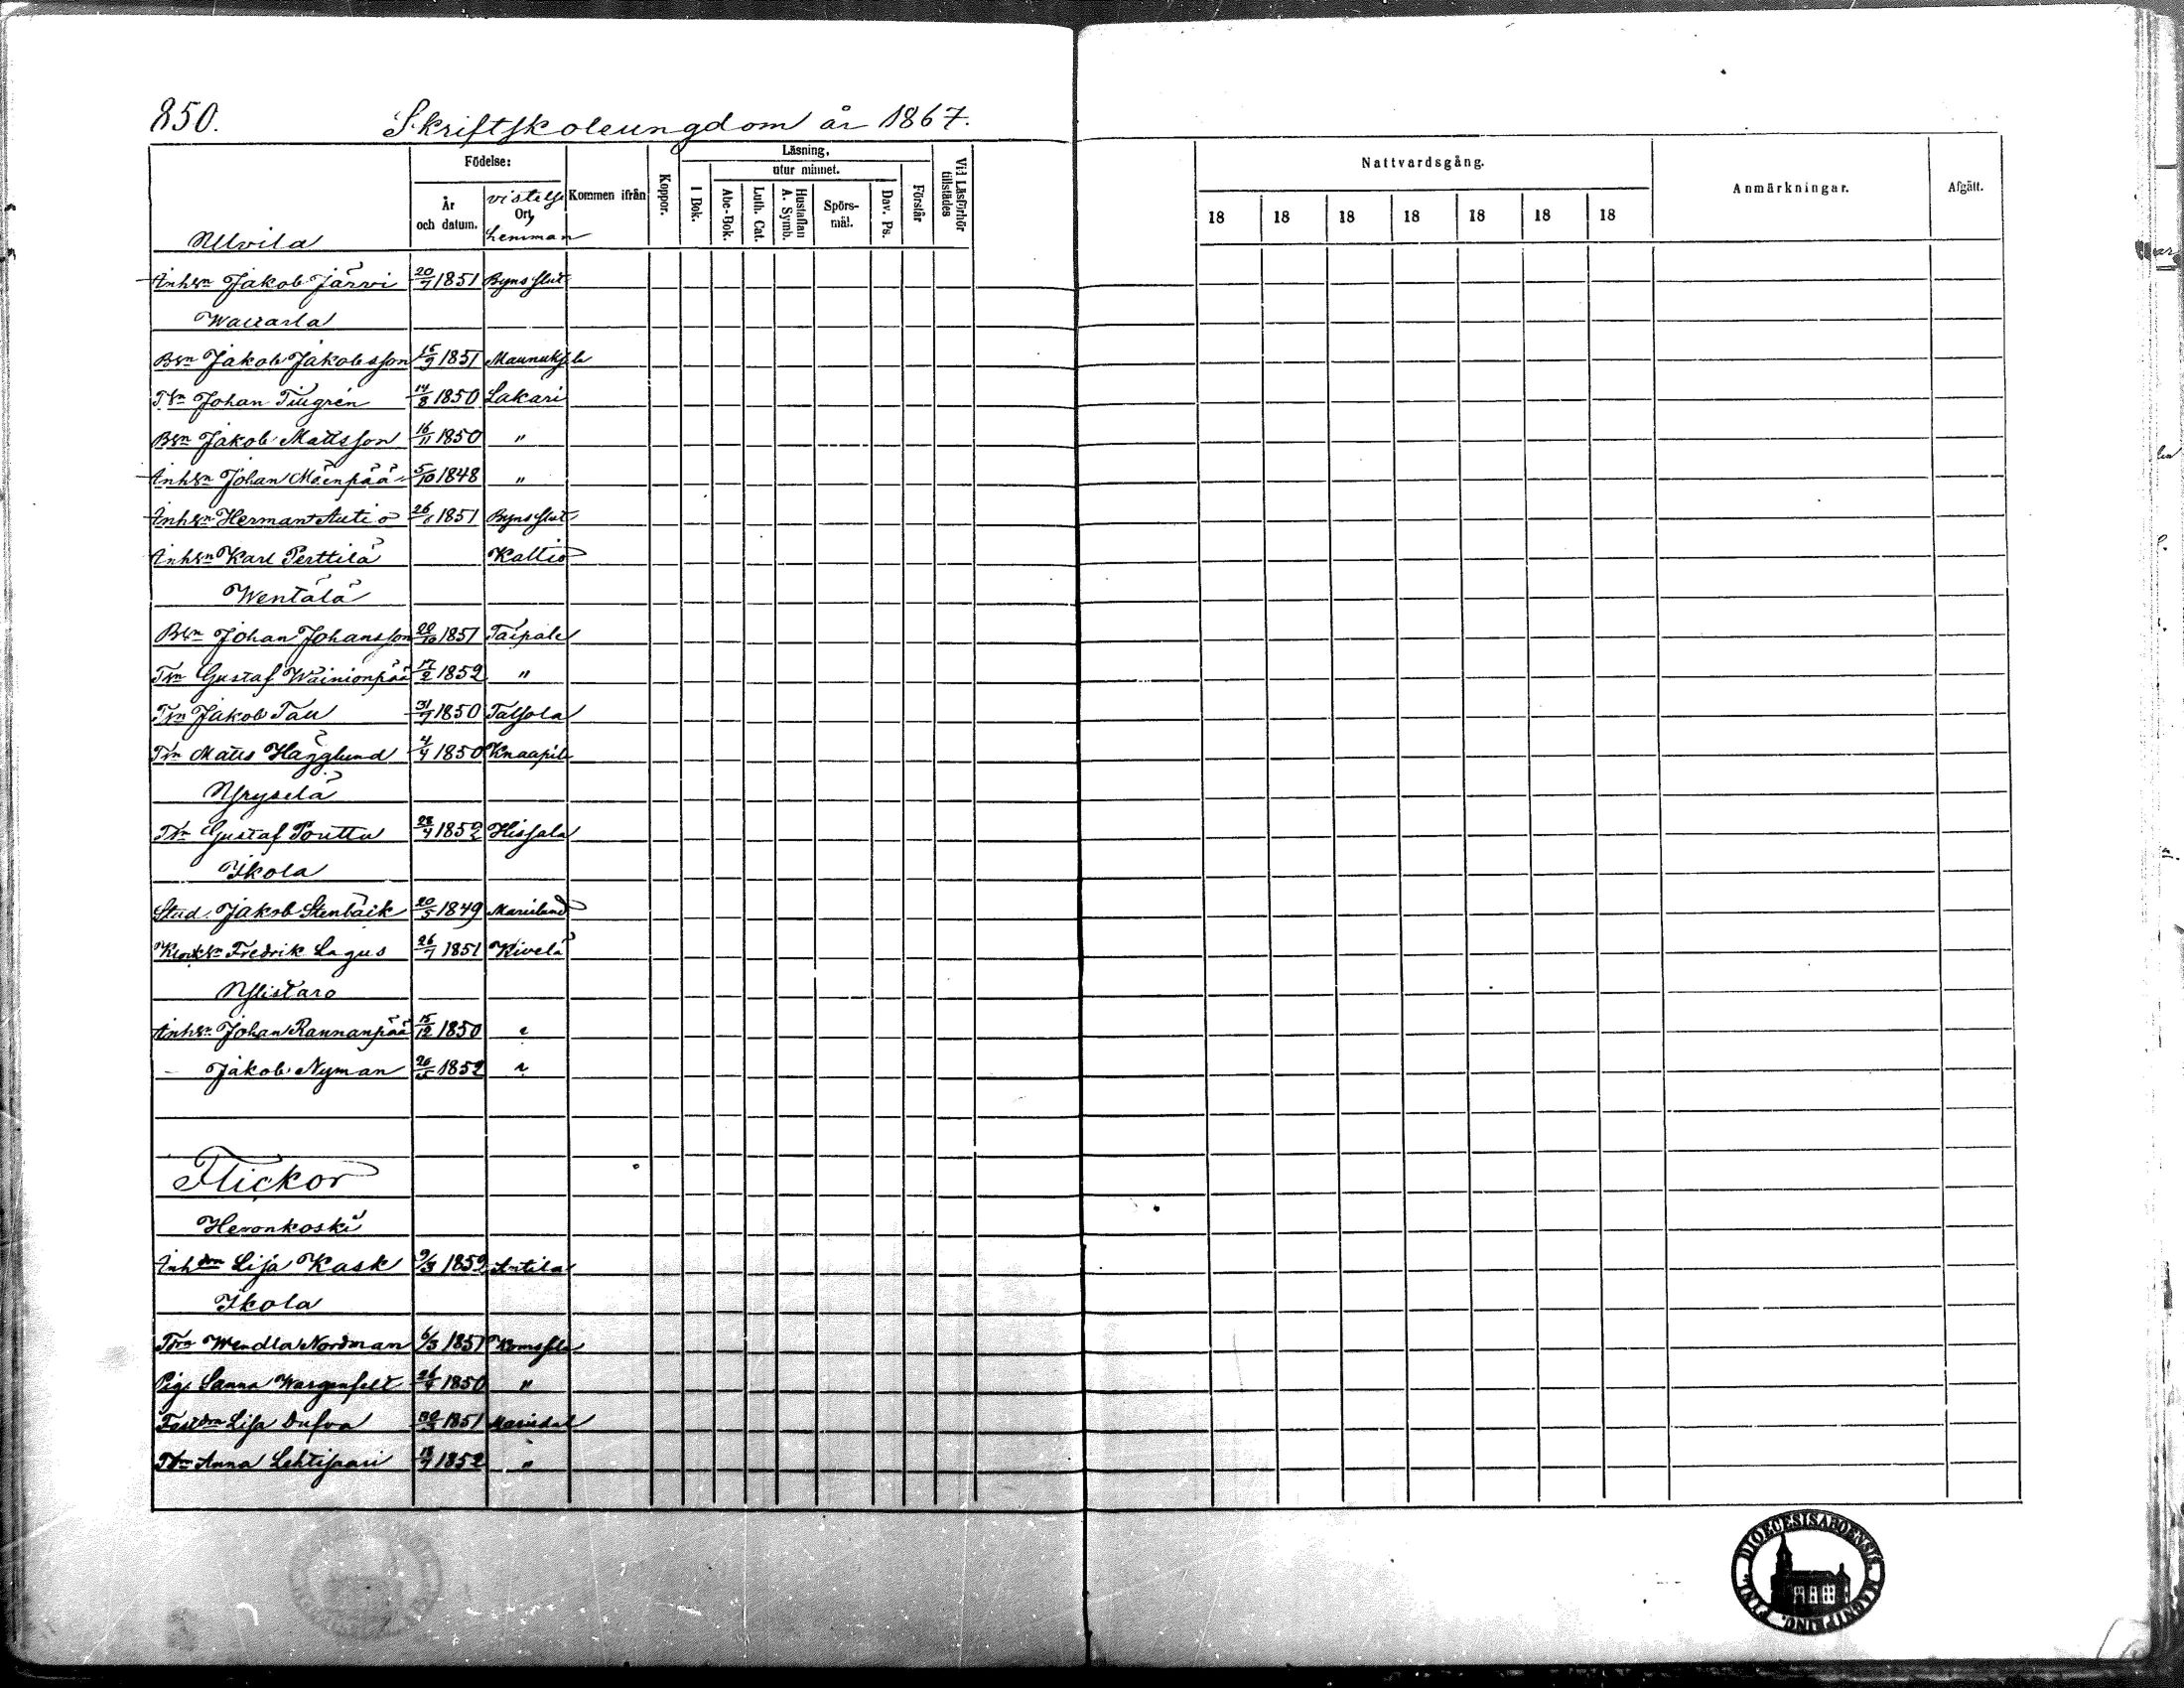 850.
Skriftskoleungdom år 1867.
Födelse:
År och datum.
vistelse Ort
Lemman
Kommen ifrån
Koppor.
Läsning,
utur minnet.
I Bok.
Abc-Bok.
Luth. Cat.
Hustaflan A. Symb.
Spörsmål.
Dav. Ps.
Förstår
Vid Läsförhör tillstädes
Nattvardsgång.
18 18 18 18 18 18 18
Anmärkningar.
Afgått.
Ulvila
Inhsn Jakob Järvi 20/7 1851 Byns slut
Waurarla
Bsn Jakob Jakobsson 15/9 1851 Maunuksela
Tsn Johan Tiugrén 14/8 1850 Lakari
Bsn Jakob Mattsson 16/11 1850 "
Inhsn Johan Mäenpää 5/10 1848 "
Inhsn Herman Autio 26/6 1851 Byns slut
Inhsn Karl Perttilä Kallio
Wentälä
Bsn Johan Johansson 20/10 1851 Taipale
Tsn Gustaf Wäinionpää 17/2 1852 "
Tsn Jakob Tau 31/7 1850 Talsola
Tsn Matts Hägglund 4/4 1850 Knaapila
Yryselä
Tsn Gustaf Pouttu 28/4 1852 Hissala
Ikola
Stud. Jakob Stenbäck 20/5 1849 Marieland
Klocksn Fredrik Lagus 26/7 1851 Kivelä
Ylistaro
Inhsn Johan Rannanpää 15/12 1850 "
- Jakob Nyman 1852 "
Flickor
Heronkoski
Inhdm Lisa Kask 9/3 1852 Antila
Ikola
Wendla Nordman 6/3 1851
Pig. Sanna Wargenfelt 1850 "
Lisa Dufva 1851 Mariedal
Anna Lehtisaari 18/7 1852 "
DIOECESIS ABOENSIS. MAGNI PRINC. FINL.